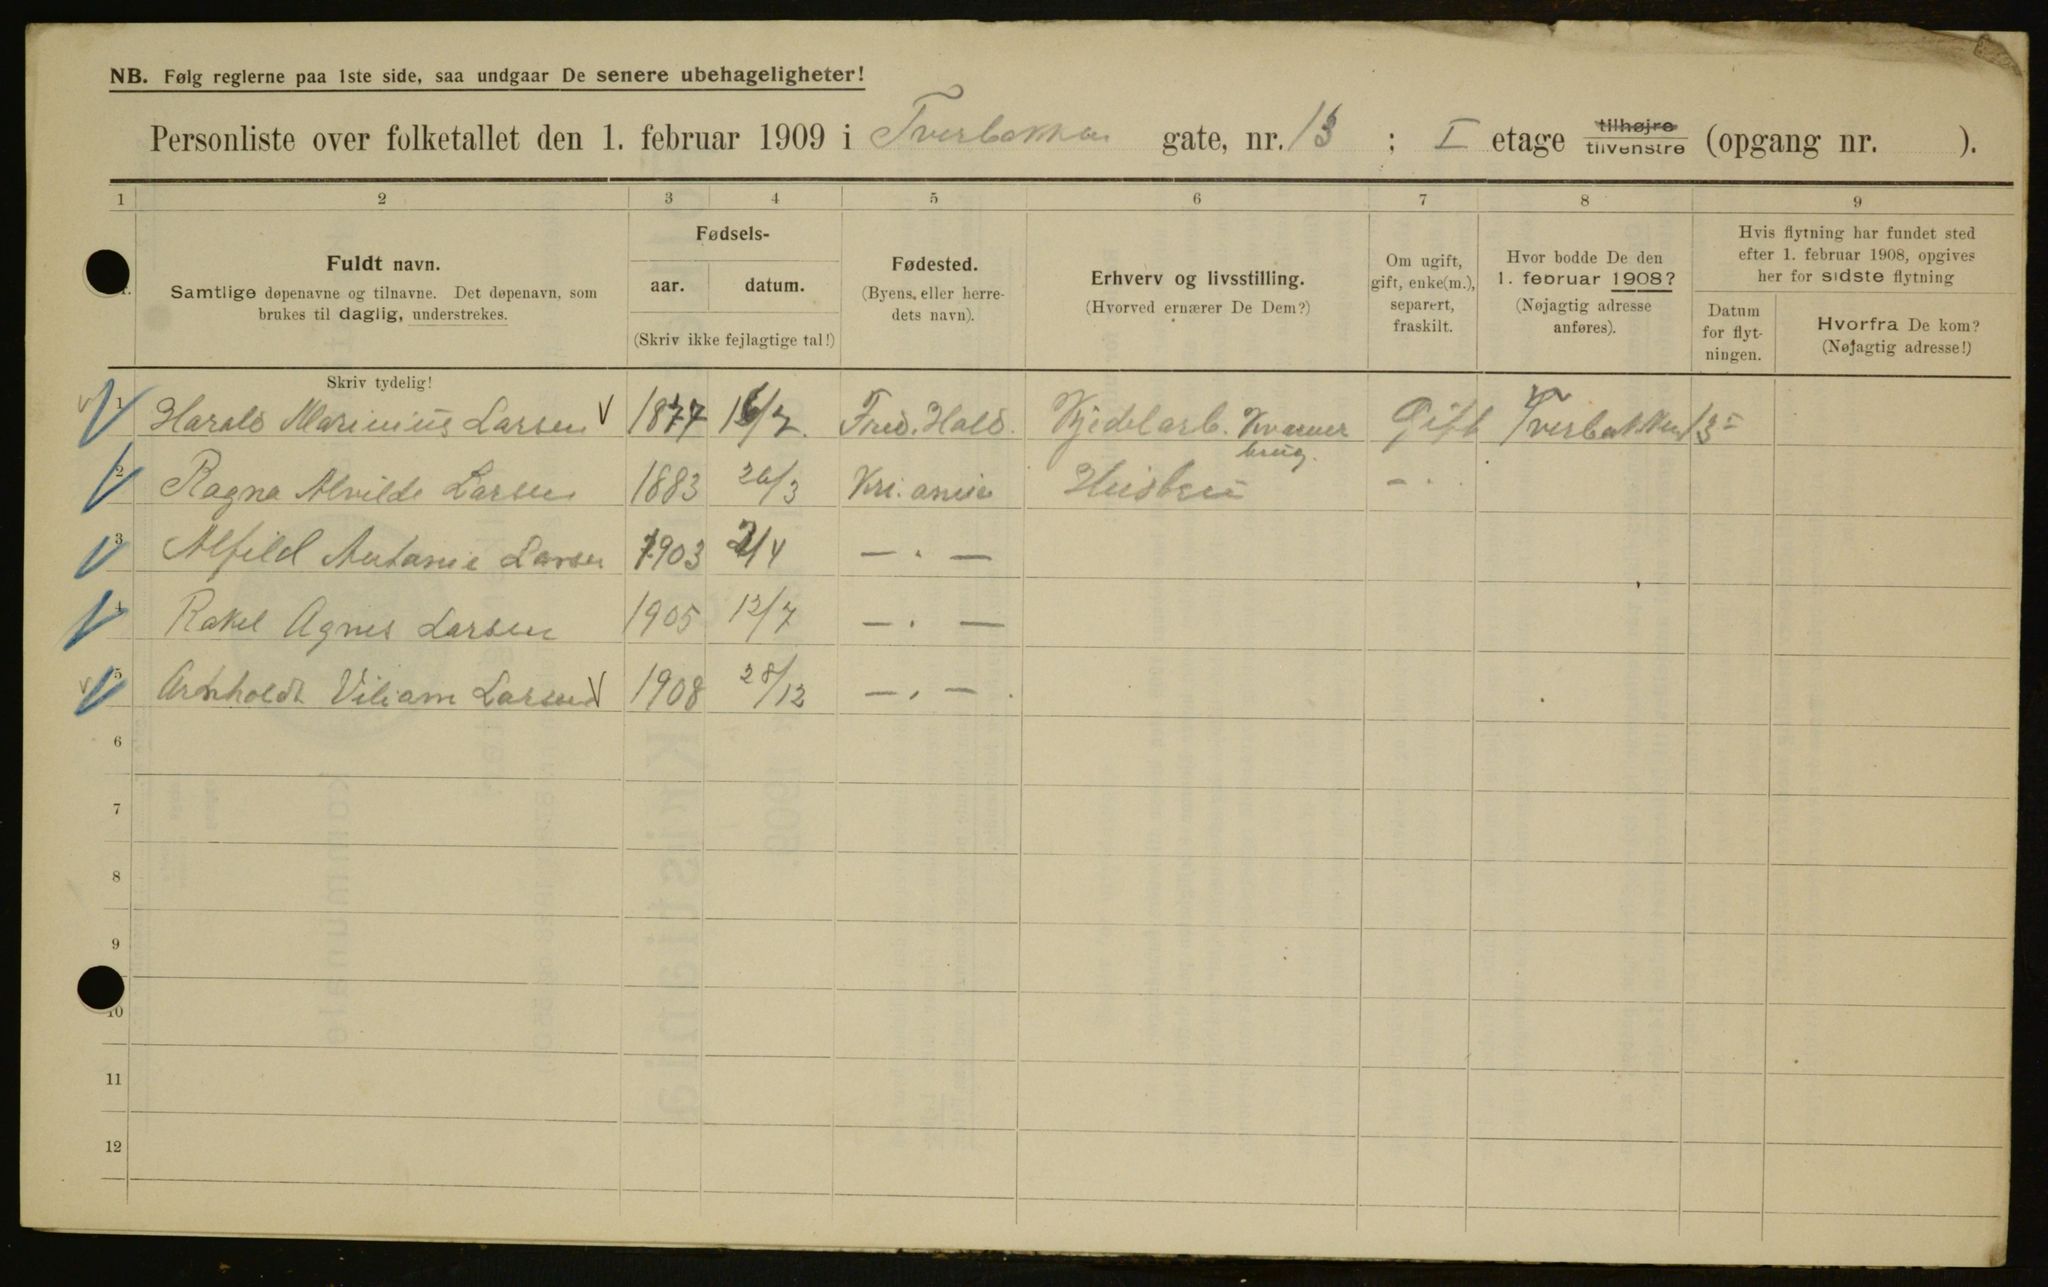 NB. Følg reglerne paa 1ste side, saa undgaar De senere ubehageligheter!
Personliste over folketallet den 1. februar 1909 i Tverbakken gate, nr. 13 ; I etage tilhøjre tilvenstre (opgang nr. ).
1 2 3 4 5 6 7 8 9
Fuldt navn.
Samtlige døpenavne og tilnavne. Det døpenavn, som
brukes til daglig, understrekes.
Skriv tydelig!
Fødsels-
aar. datum.
(Skriv ikke fejlagtige tal!)
Fødested.
(Byens, eller herre-
dets navn).
Erhverv og livsstilling.
(Hvorved ernærer De Dem?)
Om ugift,
gift, enke(m.),
separert,
fraskilt.
Hvor bodde De den
1. februar 1908?
(Nøjagtig adresse
anføres).
Hvis flytning har fundet sted
efter 1. februar 1908, opgives
her for sidste flytning
Datum
for flyt-
ningen.
Hvorfra De kom?
(Nøjagtig adresse!)
1 Harald Marinius Larsen 1877 16/7. Fred. Hald. Kjedelarb. Kværner brug. Gift Tverbakken 13 I
2 Ragna Alvilde Larsen 1883 26/3 Kri.ania Hustru – .
3 Alfild Antanie Larsen 1903 2/4 — . —
4 Rakel Agnes Larsen 1905 12/7 — . —
5 Arnholdt Viliam Larsen 1908 28/12 — . — .
6
7
8
9
10
11
12